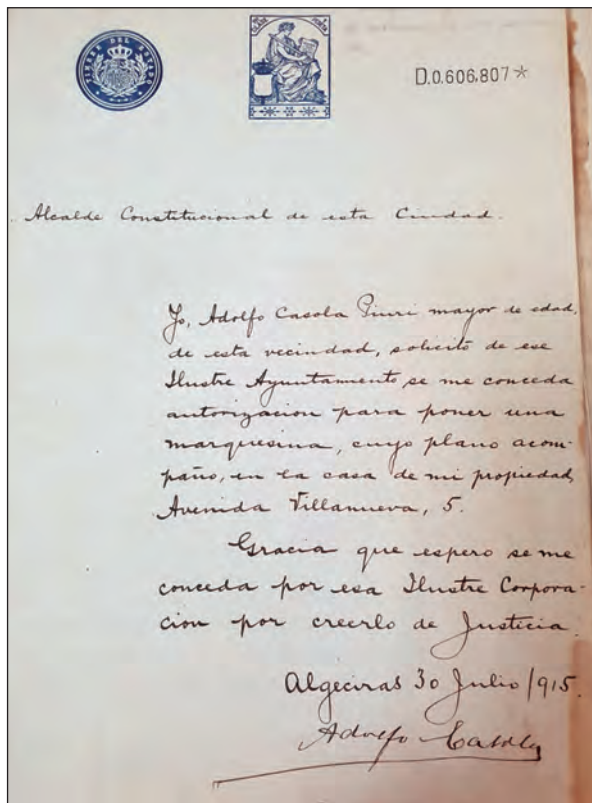 TIMBRE DEL ESTADO
D.0.606.807*
Alcalde Constitucional de esta Ciudad.
Yo, Adolfo Casola Piuri mayor de edad,
de esta vecindad, solicito de ese
Ilustre Ayuntamiento, se me conceda
autorizacion para poner una
marquesina, cuyo plano acom-
paño, en la casa de mi propiedad,
Avenida Villanueva, 5.
Gracia que espero se me
conceda por esa Ilustre Corpora-
cion por creerlo de Justicia.
Algeciras 30 Julio 1915.
Adolfo Casola